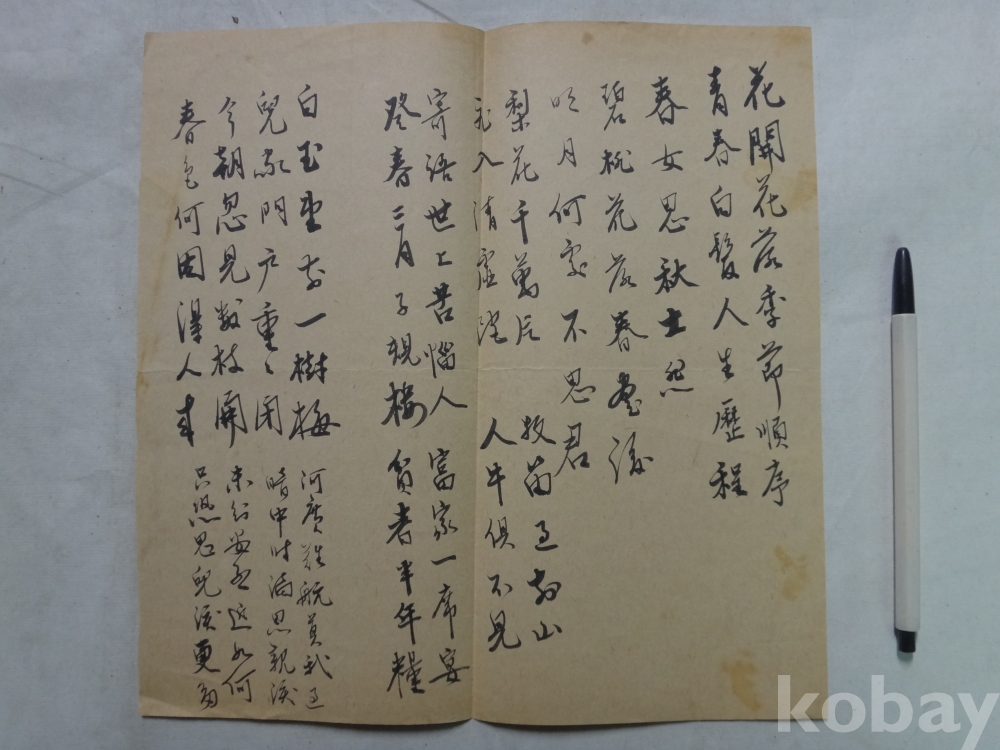 花開花落季節順序
青春白髮人生歷程
春女思秋士
碧桃花落春盡後
明月何處不思君
梨花千萬片
飛入清虛
牧笛過前山
人牛俱不見
寄語世上苦惱人
春三月子規樓
富家一席宴
貧者半年糧
白玉堂前一樹梅
兒家門戶重〻閉
今朝忽見數枝開
春色何因得入來
河廣難航莫我過
暗中時滴思親淚
未知安否近如何
只恐思兒淚更多
kobay